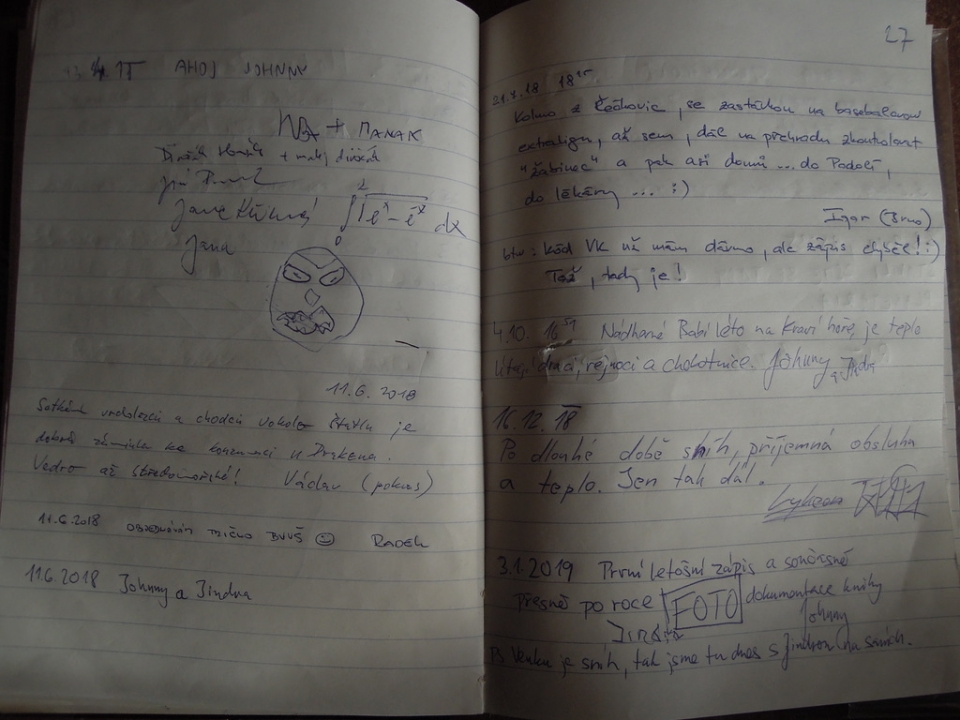 AHOJ JOHNNY
+ MANAK
+ malej
Jana
2
∫ e^x - e^-x dx
0
11.6.2018
a chodců je
dobrá záminka ke
Vedro až středomořské! Václav (pokus)
11.6.2018 OBJEDNÁVÁM TRIČKO BVVŠ ☺ RADEK
11.6.2018 Johnny a Jindra
27
21.8.18 18¹⁵
Kolmo z Řečkovic, se zastávkou na baseballovou
extraligu, až sem, dál na přehradu zkontrolovat
"žabinec" a pak asi domů ... do Podolí,
do lékárny ... :)
Igor (Brno)
btw: kód VK už mám dávno, ale zápis chyběl! :)
Tož, tady je!
4.10. 16⁵¹ Nádherné Babí léto na Kraví hoře, je teplo
létají draci, rejnoci a chobotnice. Johnny a Jindra
16.12.18
Po dlouhé době sníh, příjemná obsluha
a teplo. Jen tak dál.
3.1.2019 První letošní zápis a současně
přesně po roce FOTO dokumentace knihy
Jindra Johnny
PS Venku je sníh, tak jsme tu dnes s Jindrou na saních.